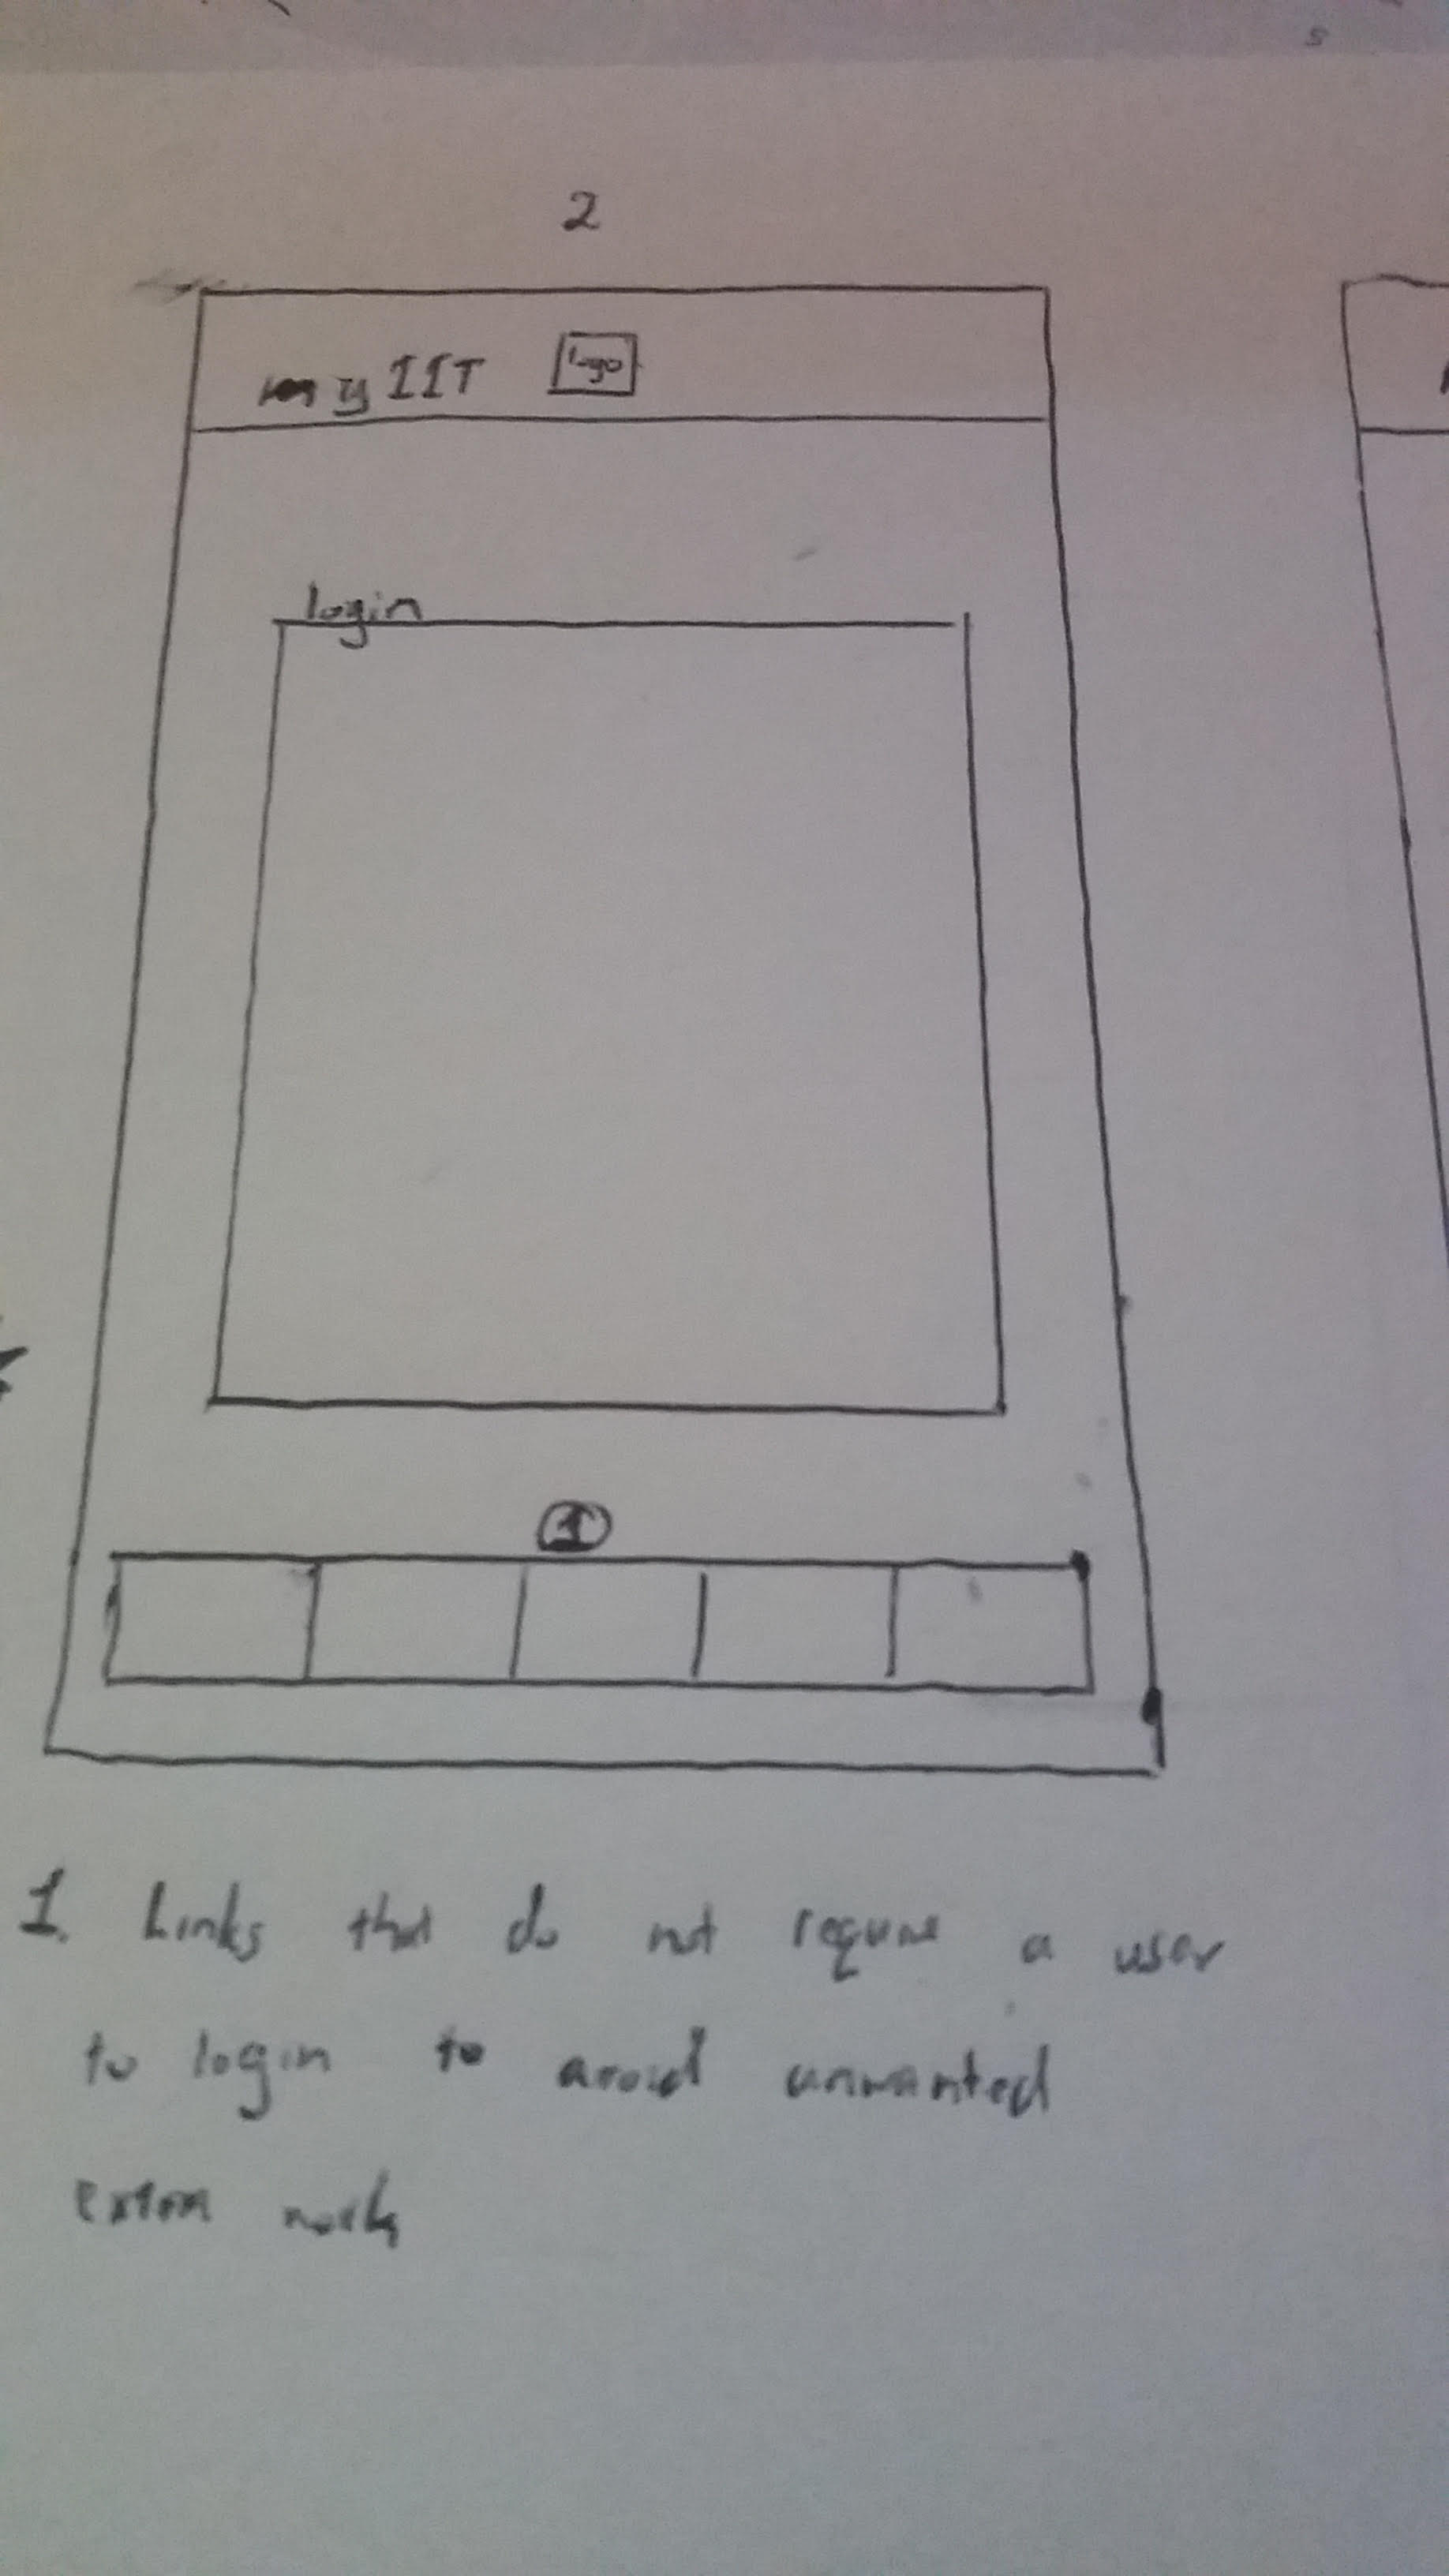 s
2
my IIT logo
login
1
1. Links that do not require a user
to login to avoid unwanted
extra work